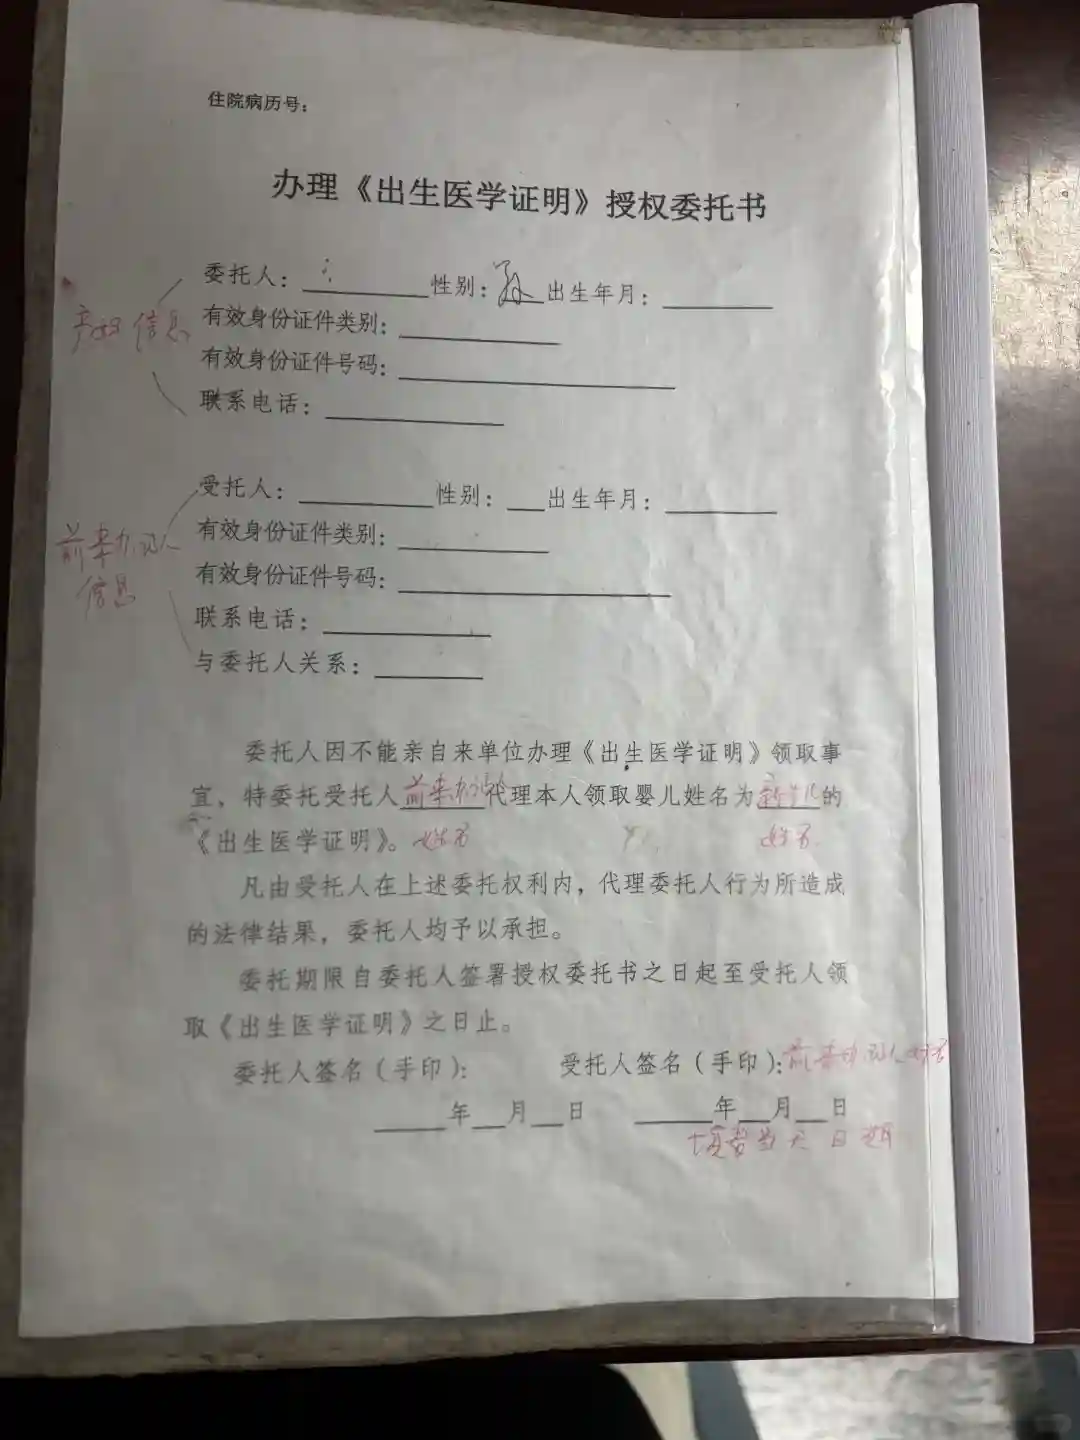 住院病历号：
办理《出生医学证明》授权委托书
委托人：____性别：__出生年月：____
产妇信息
有效身份证件类别：____
有效身份证件号码：____
联系电话：____
受托人：____性别：__出生年月：____
前来办证人
信息
有效身份证件类别：____
有效身份证件号码：____
联系电话：____
与委托人关系：____
委托人因不能亲自来单位办理《出生医学证明》领取事
宜，特委托受托人前来办证人代理本人领取婴儿姓名为新生儿的
《出生医学证明》。姓名 姓名
凡由受托人在上述委托权利内，代理委托人行为所造成
的法律结果，委托人均予以承担。
委托期限自委托人签署授权委托书之日起至受托人领
取《出生医学证明》之日止。
委托人签名（手印）： 受托人签名（手印）：前来办证人姓名
____年__月__日 ____年__月__日
填写当天日期